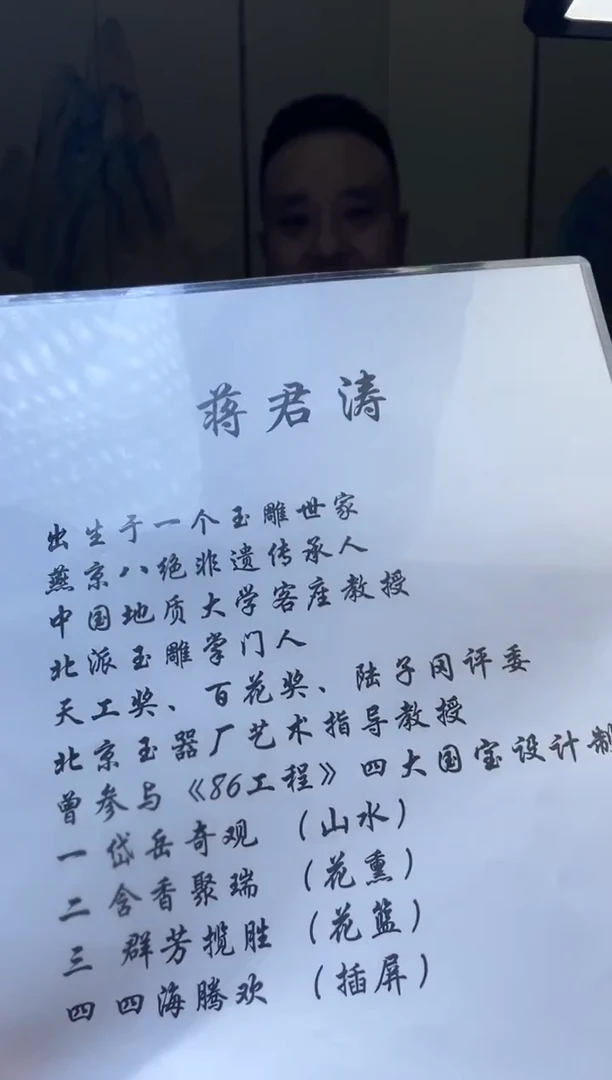 蒋君涛
出生于一个玉雕世家
燕京八绝非遗传承人
中国地质大学客座教授
北派玉雕掌门人
天工奖、百花奖、陆子冈评委
北京玉器厂艺术指导教授
曾参与《86工程》四大国宝设计制
一 岱岳奇观 (山水)
二 含香聚瑞 (花熏)
三 群芳揽胜 (花篮)
四 四海腾欢 (插屏)